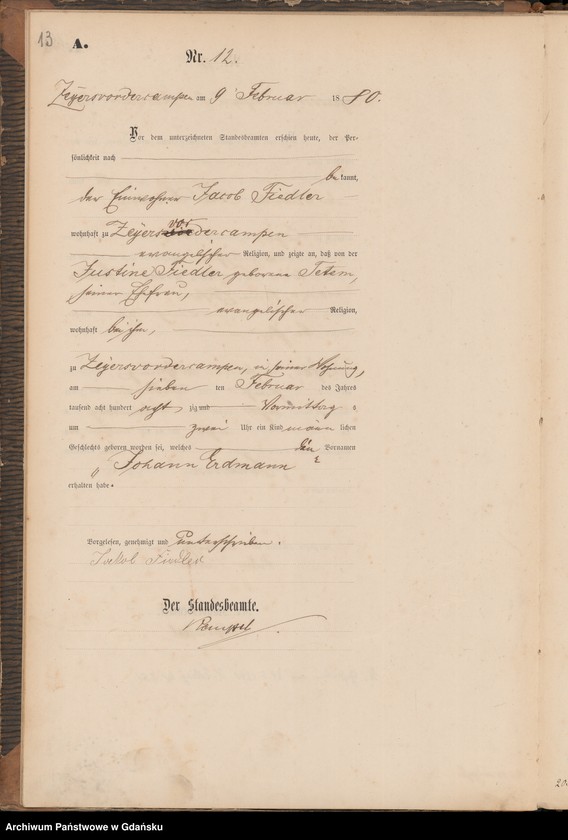 13
A.
Nr. 12.
Zeyersvordercampen am 9 Februar 1880.
Vor dem unterzeichneten Standesbeamten erschien heute, der Per-
sönlichkeit nach
be kannt,
der Einwohner Jacob Fiedler
wohnhaft zu Zeyersvordercampen
evangelischer Religion, und zeigte an, daß von der
Justine Fiedler geborene Tetem,
seiner Ehefrau,
evangelischer Religion,
wohnhaft bei ihm,
zu Zeyersvordercampen, in seiner Wohnung,
am sieben ten Februar des Jahres
tausend acht hundert acht zig und Vormittag s
um zwei Uhr ein Kind männ lichen
Geschlechts geboren worden sei, welches den Vornamen
Johann Erdmann
erhalten habe.
Vorgelesen, genehmigt und unterschrieben.
Jakob Fiedler
Der Standesbeamte.
Archiwum Państwowe w Gdańsku